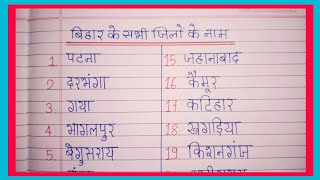 बिहार के सभी जिलों के नाम
1. पटना
2 दरभंगा
3 गया
4 भागलपुर
5. बेगुसराय
15 जहानाबाद
16 कैमूर
17 कटिहार
18 खगड़िया
19. किशनगंज